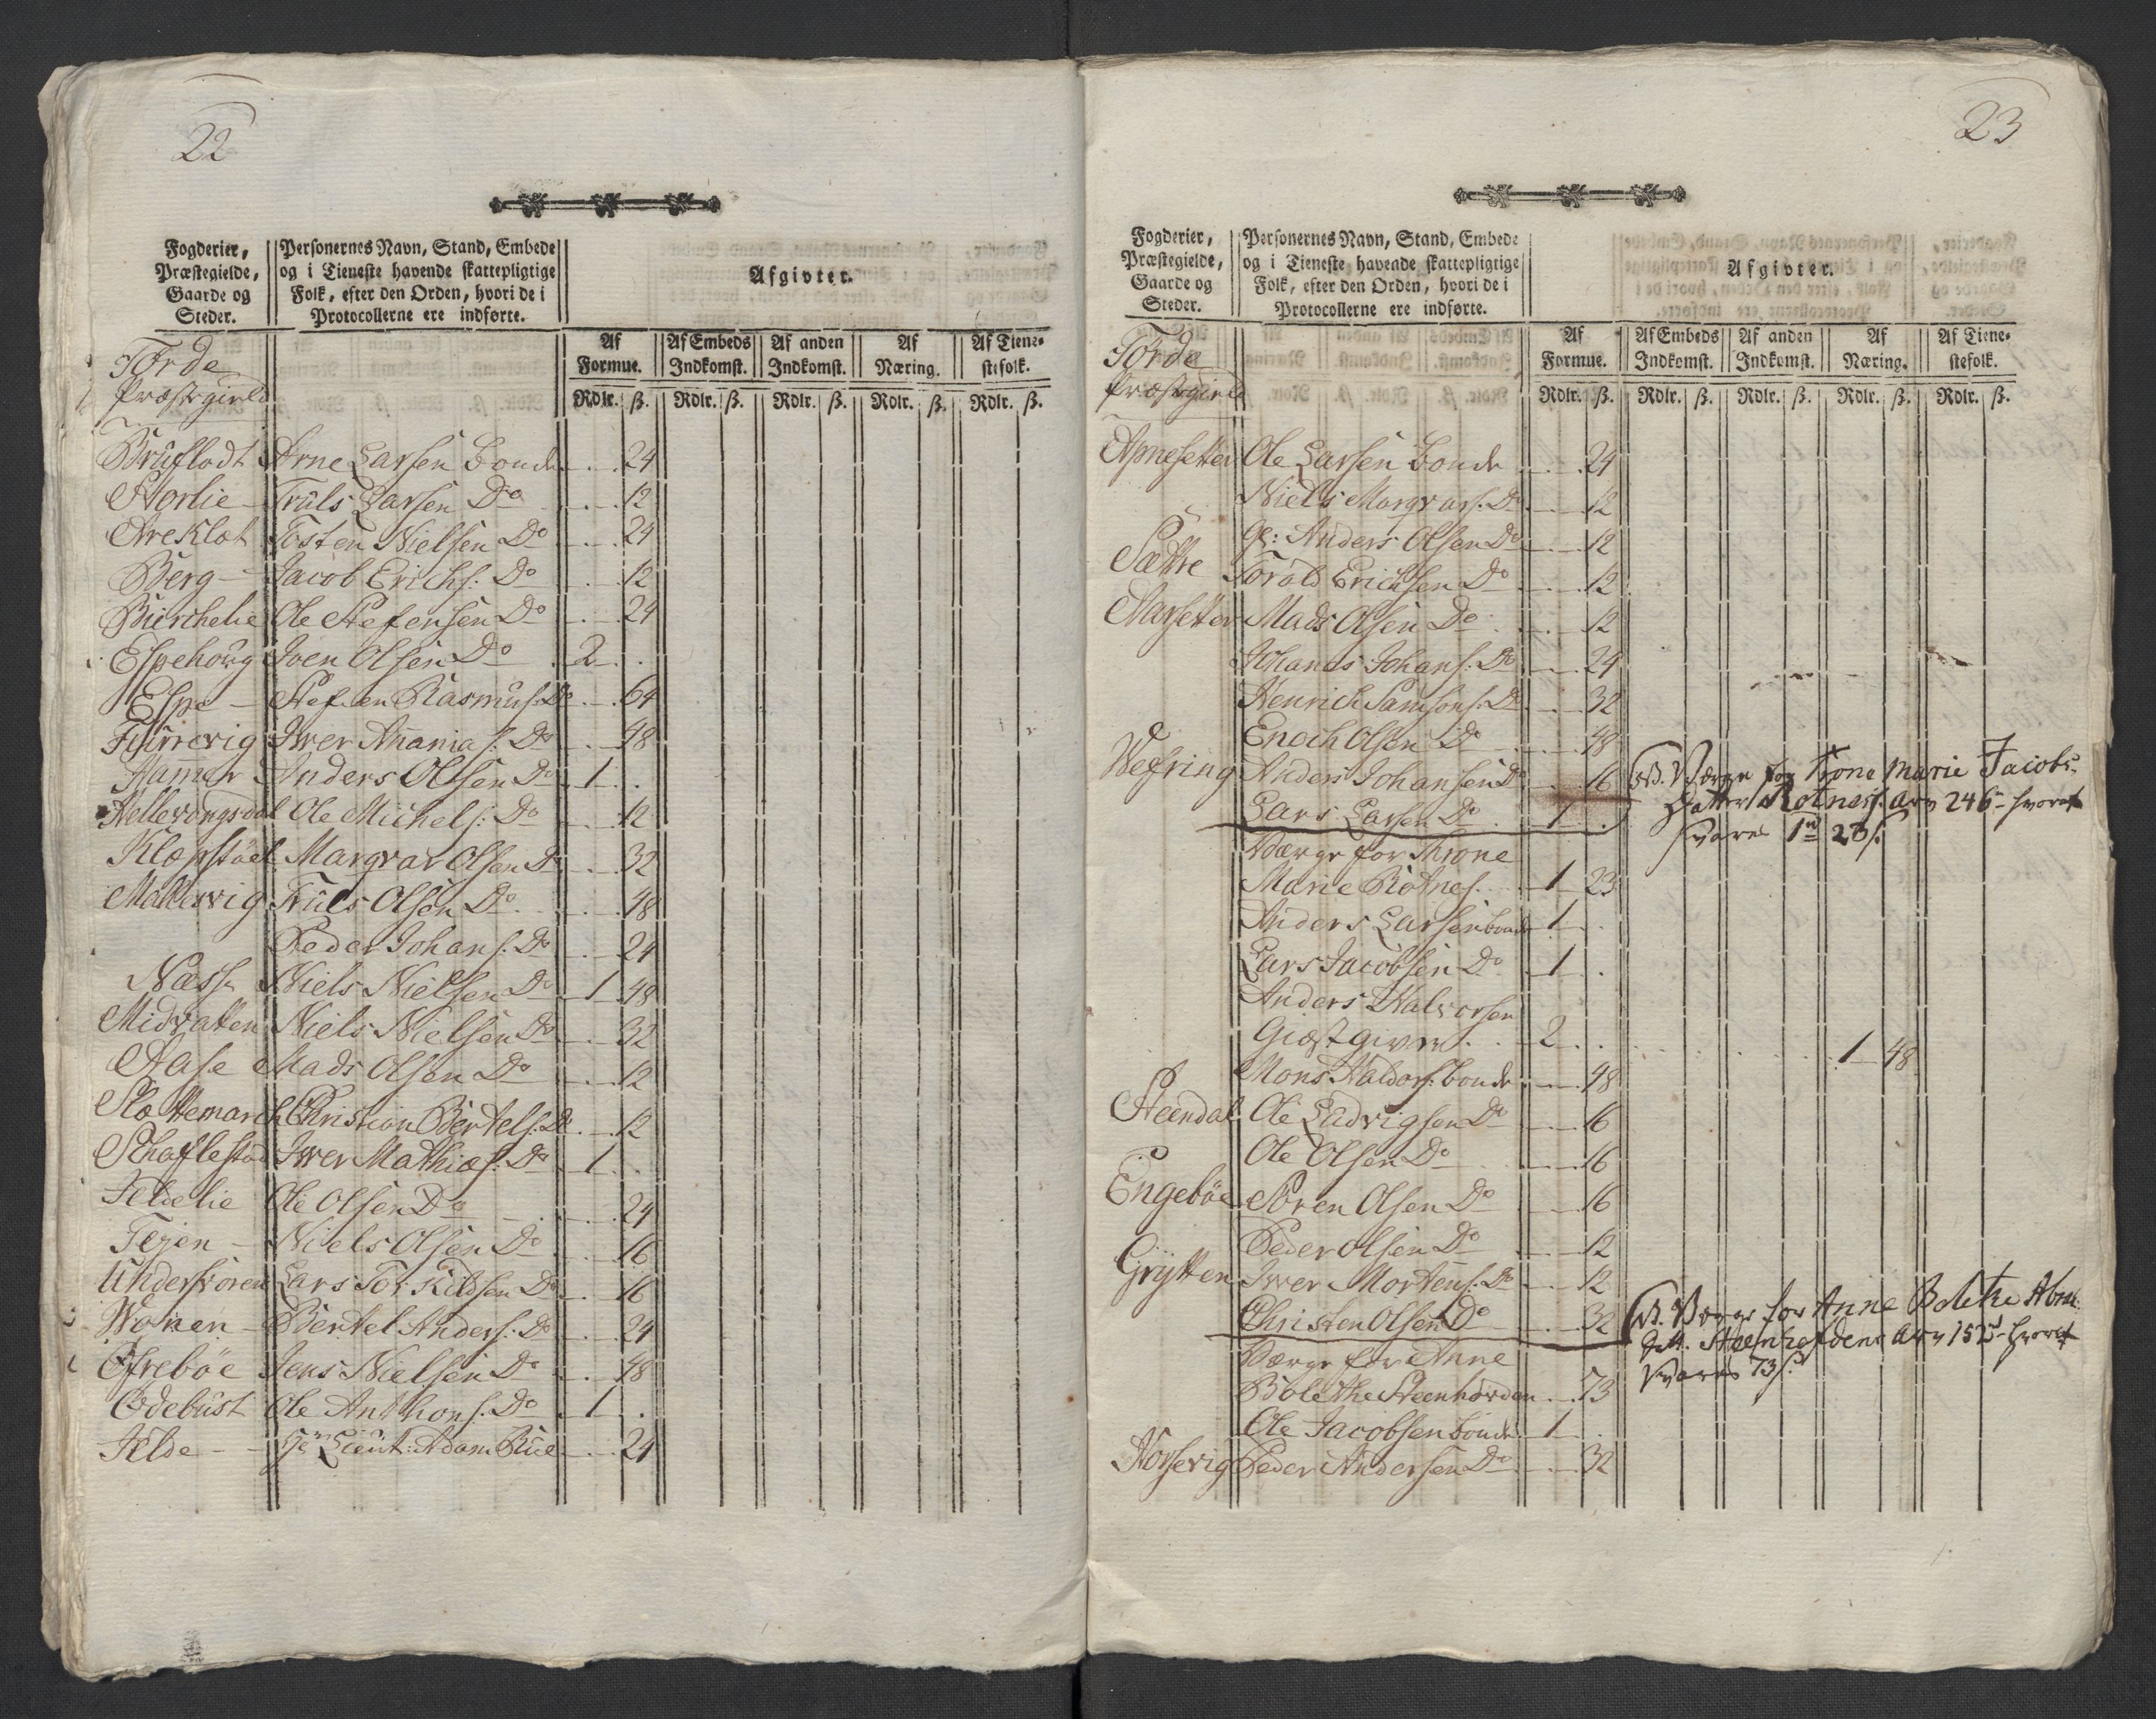 22
Fogderier, Præstegielde, Gaarde og Steder.
Personernes Navn, Stand, Embede og i Tieneste havende skattepligtige Folk, efter den Orden, hvori de i Protocollerne ere indførte.
Afgivter.
Af Formue. Af Embeds Indkomst. Af anden Indkomst. Af Næring. Af Tienestefolk.
Rdlr. ß. Rdlr. ß. Rdlr. ß. Rdlr. ß. Rdlr. ß.
Förde
Præstegield
Bruflodt Arne Larsen bonde 24
Storlie Truls Larsen Do 12
Areklot Tosten Nielsen Do 24
Berg Jacob Erichs: Do 12
Birchelie Ole Stefensen Do 24
Espehoug Joen Olsen Do 2
Espe Stefen Rasmus: Do 64
Furrevig Iwer Ananias: Do 48
Hammer Anders Olsen Do 1
Hellevongsdal Ole Michels: Do 12
Klopstöel Margvar Olsen Do 32
Mallerwig Truls Olsen Do 48
Peder Johans: Do 24
Næss Niels Nielsen Do 1 48
Midvatten Niels Nielsen Do 32
Aase Mads Olsen Do 12
Slottemarch Christian Bertels: Do 12
Schaflestad Iwer Mathias: Do 1
Feldelie Ole Olsen Do 24
Tejen Niels Olsen Do 16
Undersvoren Lars Torkildsen Do 16
Wonen Bertel Anders: Do 24
Ofrebøe Jens Nielsen Do 48
Odebust Ole Anthons: Do 1
Jelde Hr Lieut: Adam Rüe 24
23
Fogderier, Præstegielde, Gaarde og Steder.
Personernes Navn, Stand, Embede og i Tieneste havende skattepligtige Folk, efter den Orden, hvori de i Protocollerne ere indførte.
Afgivter.
Af Formue. Af Embeds Indkomst. Af anden Indkomst. Af Næring. Af Tienestefolk.
Rdlr. ß. Rdlr. ß. Rdlr. ß. Rdlr. ß. Rdlr. ß.
Förde
Præstegield
Apnesetter Ole Larsen bonde 24
Niels Margvars: Do 12
gl: Anders Olsen Do 12
Sætre Torald Erichsen Do 12
Aarsetter Mads Olsen Do 12
Johanes Johans: Do 24
Henrich Samsons: Do 32
Enoch Olsen Do 48
Wefring Anders Johansen Do 16
Lars Larsen Do 1
NB. Værge for Trone Marie Jacobs
Datter Rotnes Arv 246 hvoraf
svares 1 rd 23 ß.
Værge for Throne
Marie Rotnes 1 23
Anders Larsen bonde 1
Lars Jacobsen Do 1
Anders Halvorsen
Giæstgiver 2 1 48
Mons Haldors: bonde 48
Steendal Ole Ludvigsen Do 16
Ole Olsen Do 16
Engebøe Sören Olsen Do 16
Peder Olsen Do 12
Grytten Iwer Mortens: Do 12
Christen Olsen Do 32
NB. Værge for Anne Bolethe
Arv 152 hvoraf
svares 73 ß.
Værge for Anne
Bolethe Steenhovden 73
Ole Jacobsen bonde 1
Horsevig Peder Andersen Do 32